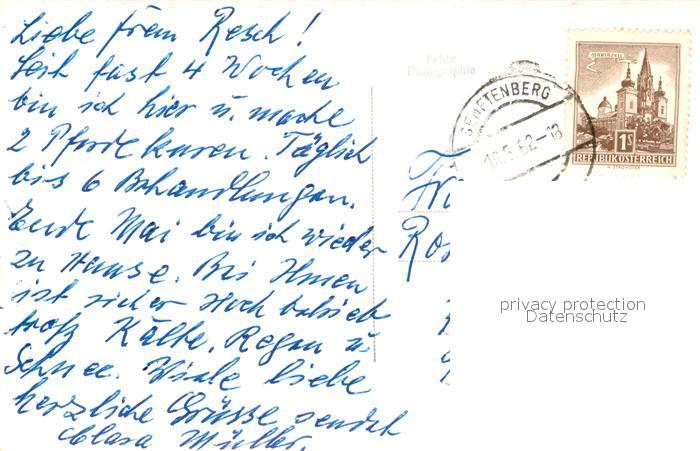 Liebe Frau Resch!
Seit fast 4 Wochen
bin ich hier u. mache
2 Pferdekuren. Täglich
bis 6 Behandlungen.
Ende Mai bin ich wieder
zu Hause. Bei Ihnen
ist sicher Hochbetrieb
trotz Kälte, Regen u.
Schnee. Viele liebe
herzliche Grüsse sendet
Clara Müller.
Echte
Photographie
SENFTENBERG
MARIAZELL
1S
REPUBLIK ÖSTERREICH
privacy protection
Datenschutz